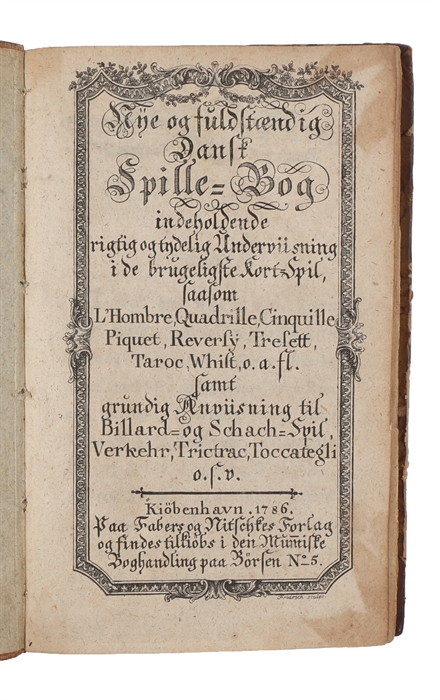 Nye og fuldstændig
Dansk
Spille=Bog
indeholdende
rigtig og tydelig Underviisning
i de brugeligste Kort=Spil,
saasom
L'Hombre, Quadrille, Cinquille
Piquet, Reversÿ, Tresett,
Taroc, Whist, o. a. fl.
samt
grundig Anviisning til
Billard= og Schach=Spil,
Verkehr, Trictrac, Toccategli
o. s. v.
Kiöbenhavn. 1786.
Paa Fabers og Nitschkes Forlag
og findes tilkiöbs i den Mum̄iske
Boghandling paa Börsen No. 5.